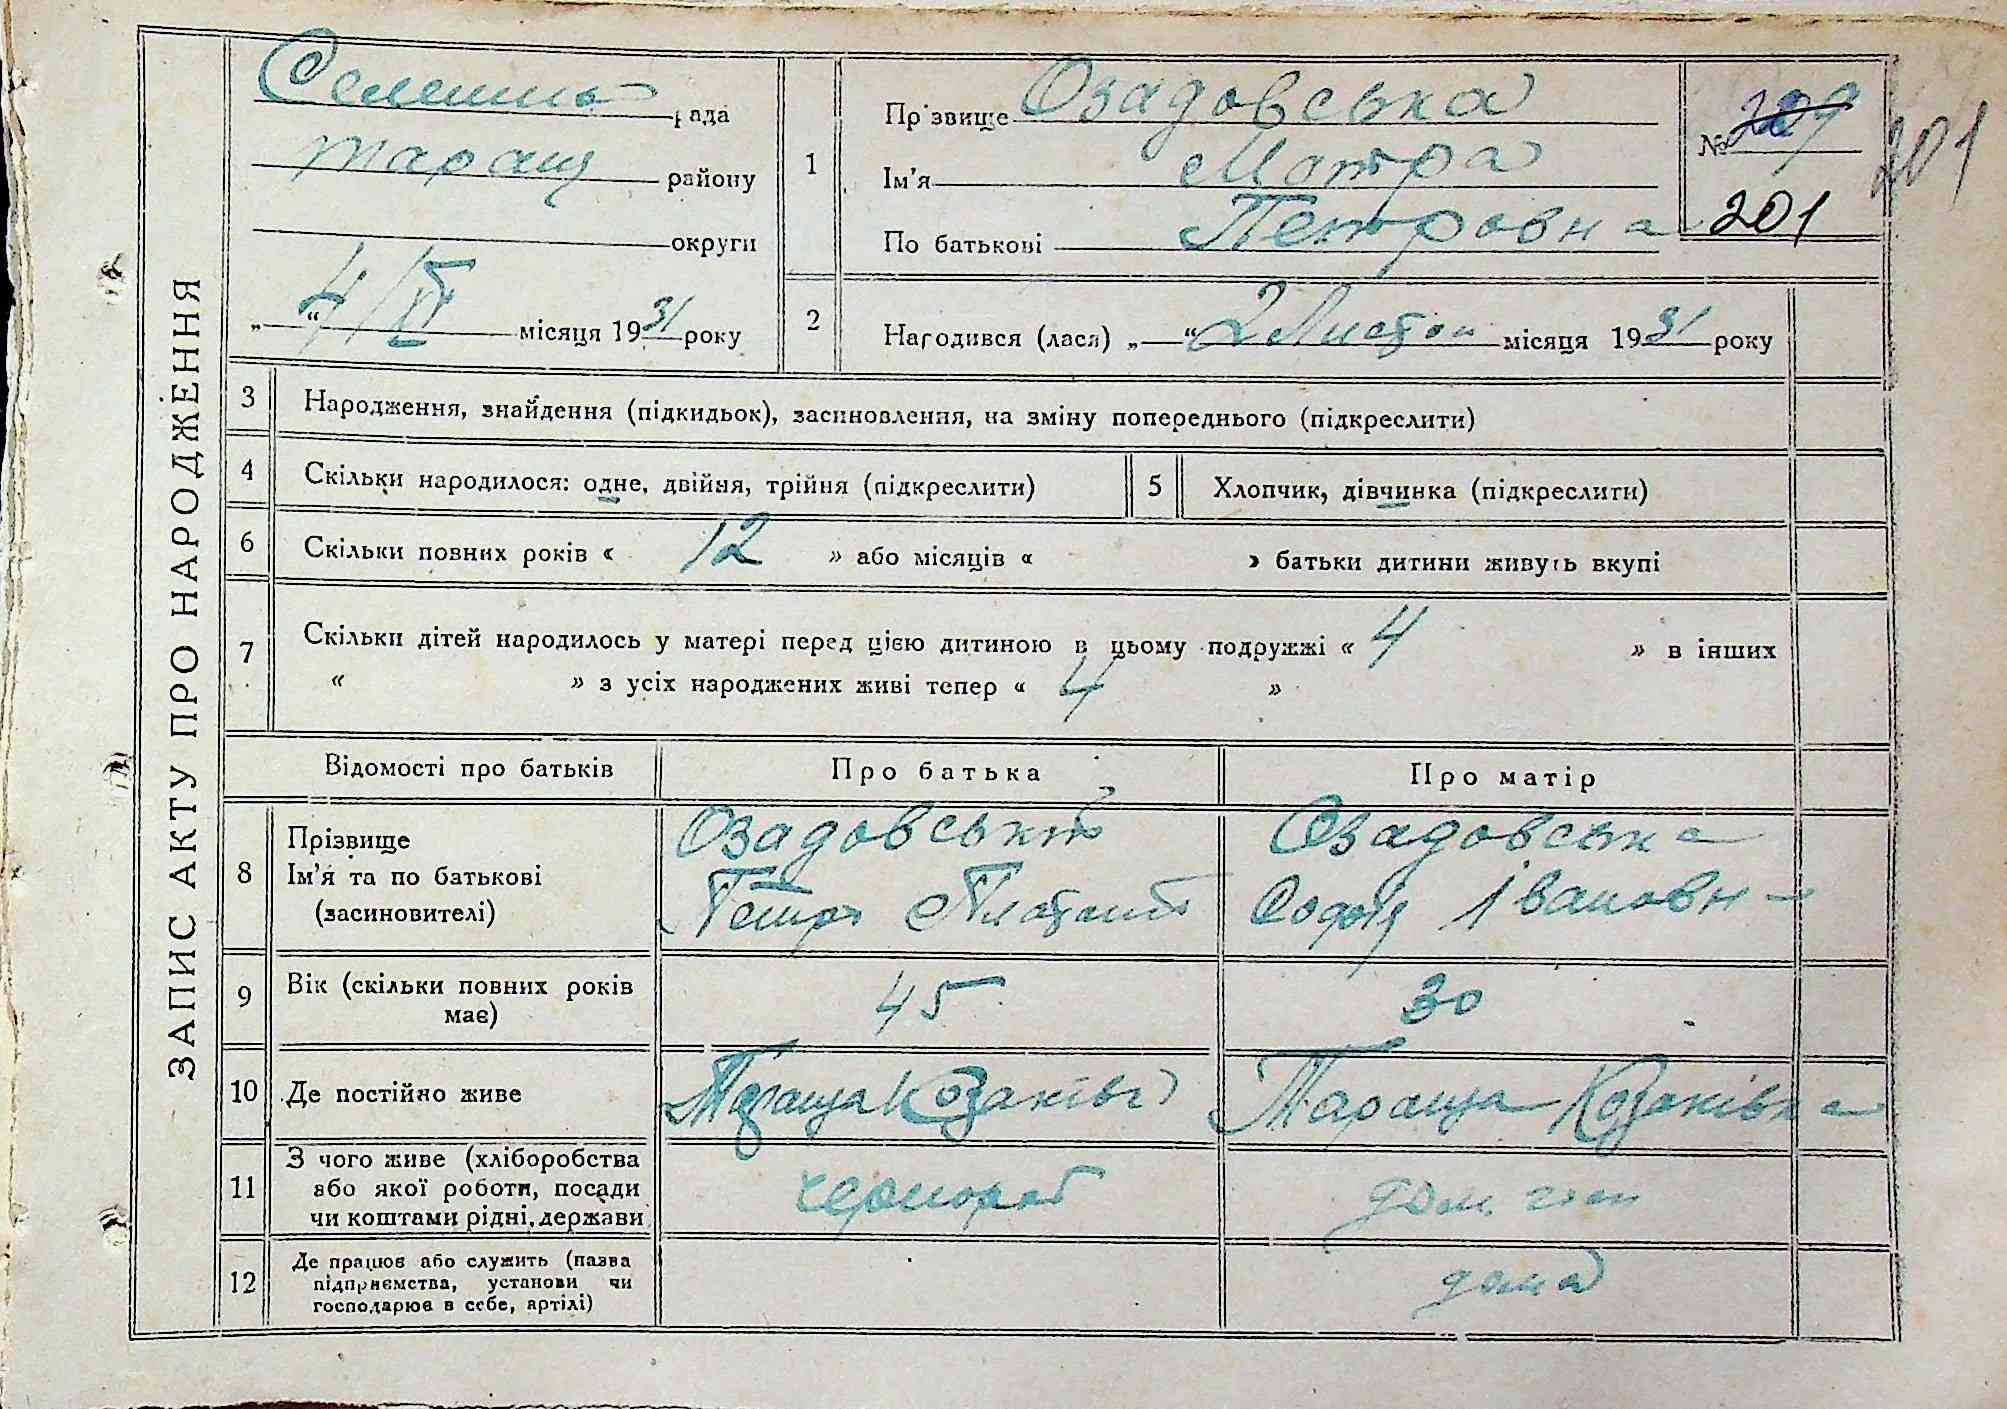 ЗАПИС АКТУ ПРО НАРОДЖЕННЯ
Селешна рада
Таращ району
округи
„ 4/XI “ місяця 1931 року
1
Прізвище Озадовська
Ім'я Мотра
По батькові Петровна
№ 209
201
201
2 Народився (лася) „ “ 2 Листоп місяця 1931 року
3 Народження, знайдення (підкидьок), засиновлення, на зміну попереднього (підкреслити)
4 Скільки народилося: одне, двійня, трійня (підкреслити)
5 Хлопчик, дівчинка (підкреслити)
6 Скільки повних років « 12 » або місяців « » батьки дитини живуть вкупі
7 Скільки дітей народилось у матері перед цією дитиною в цьому подружжі « 4 » в інших
« » з усіх народжених живі тепер « 4 »
Відомості про батьків Про батька Про матір
8 Прізвище
Ім'я та по батькові
(засиновителі)
Озадовський
Петро
Озадовська
Софія Івановн
9 Вік (скільки повних років
має)
45
30
10 Де постійно живе
Тараща Козаківк
Тараща Козаківка
11 З чого живе (хліборобства
або якої роботи, посади
чи коштами рідні, держави
чорнороб
дом госп
12 Де працює або служить (назва
підприємства, установи чи
господарює в себе, артілі)
дома